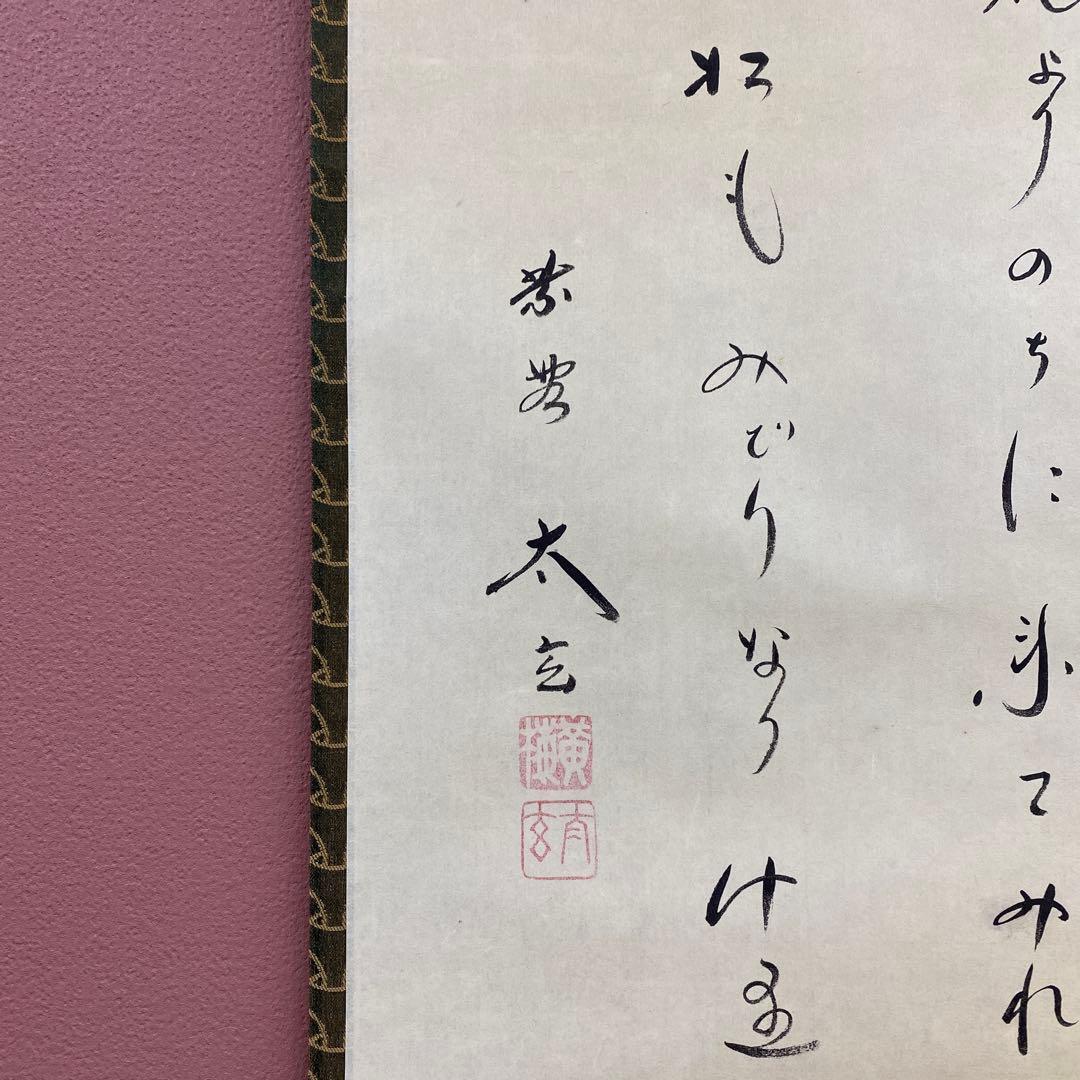 よりのちに来てみれ
松もみどりなりけり
紫野 太玄
太玄